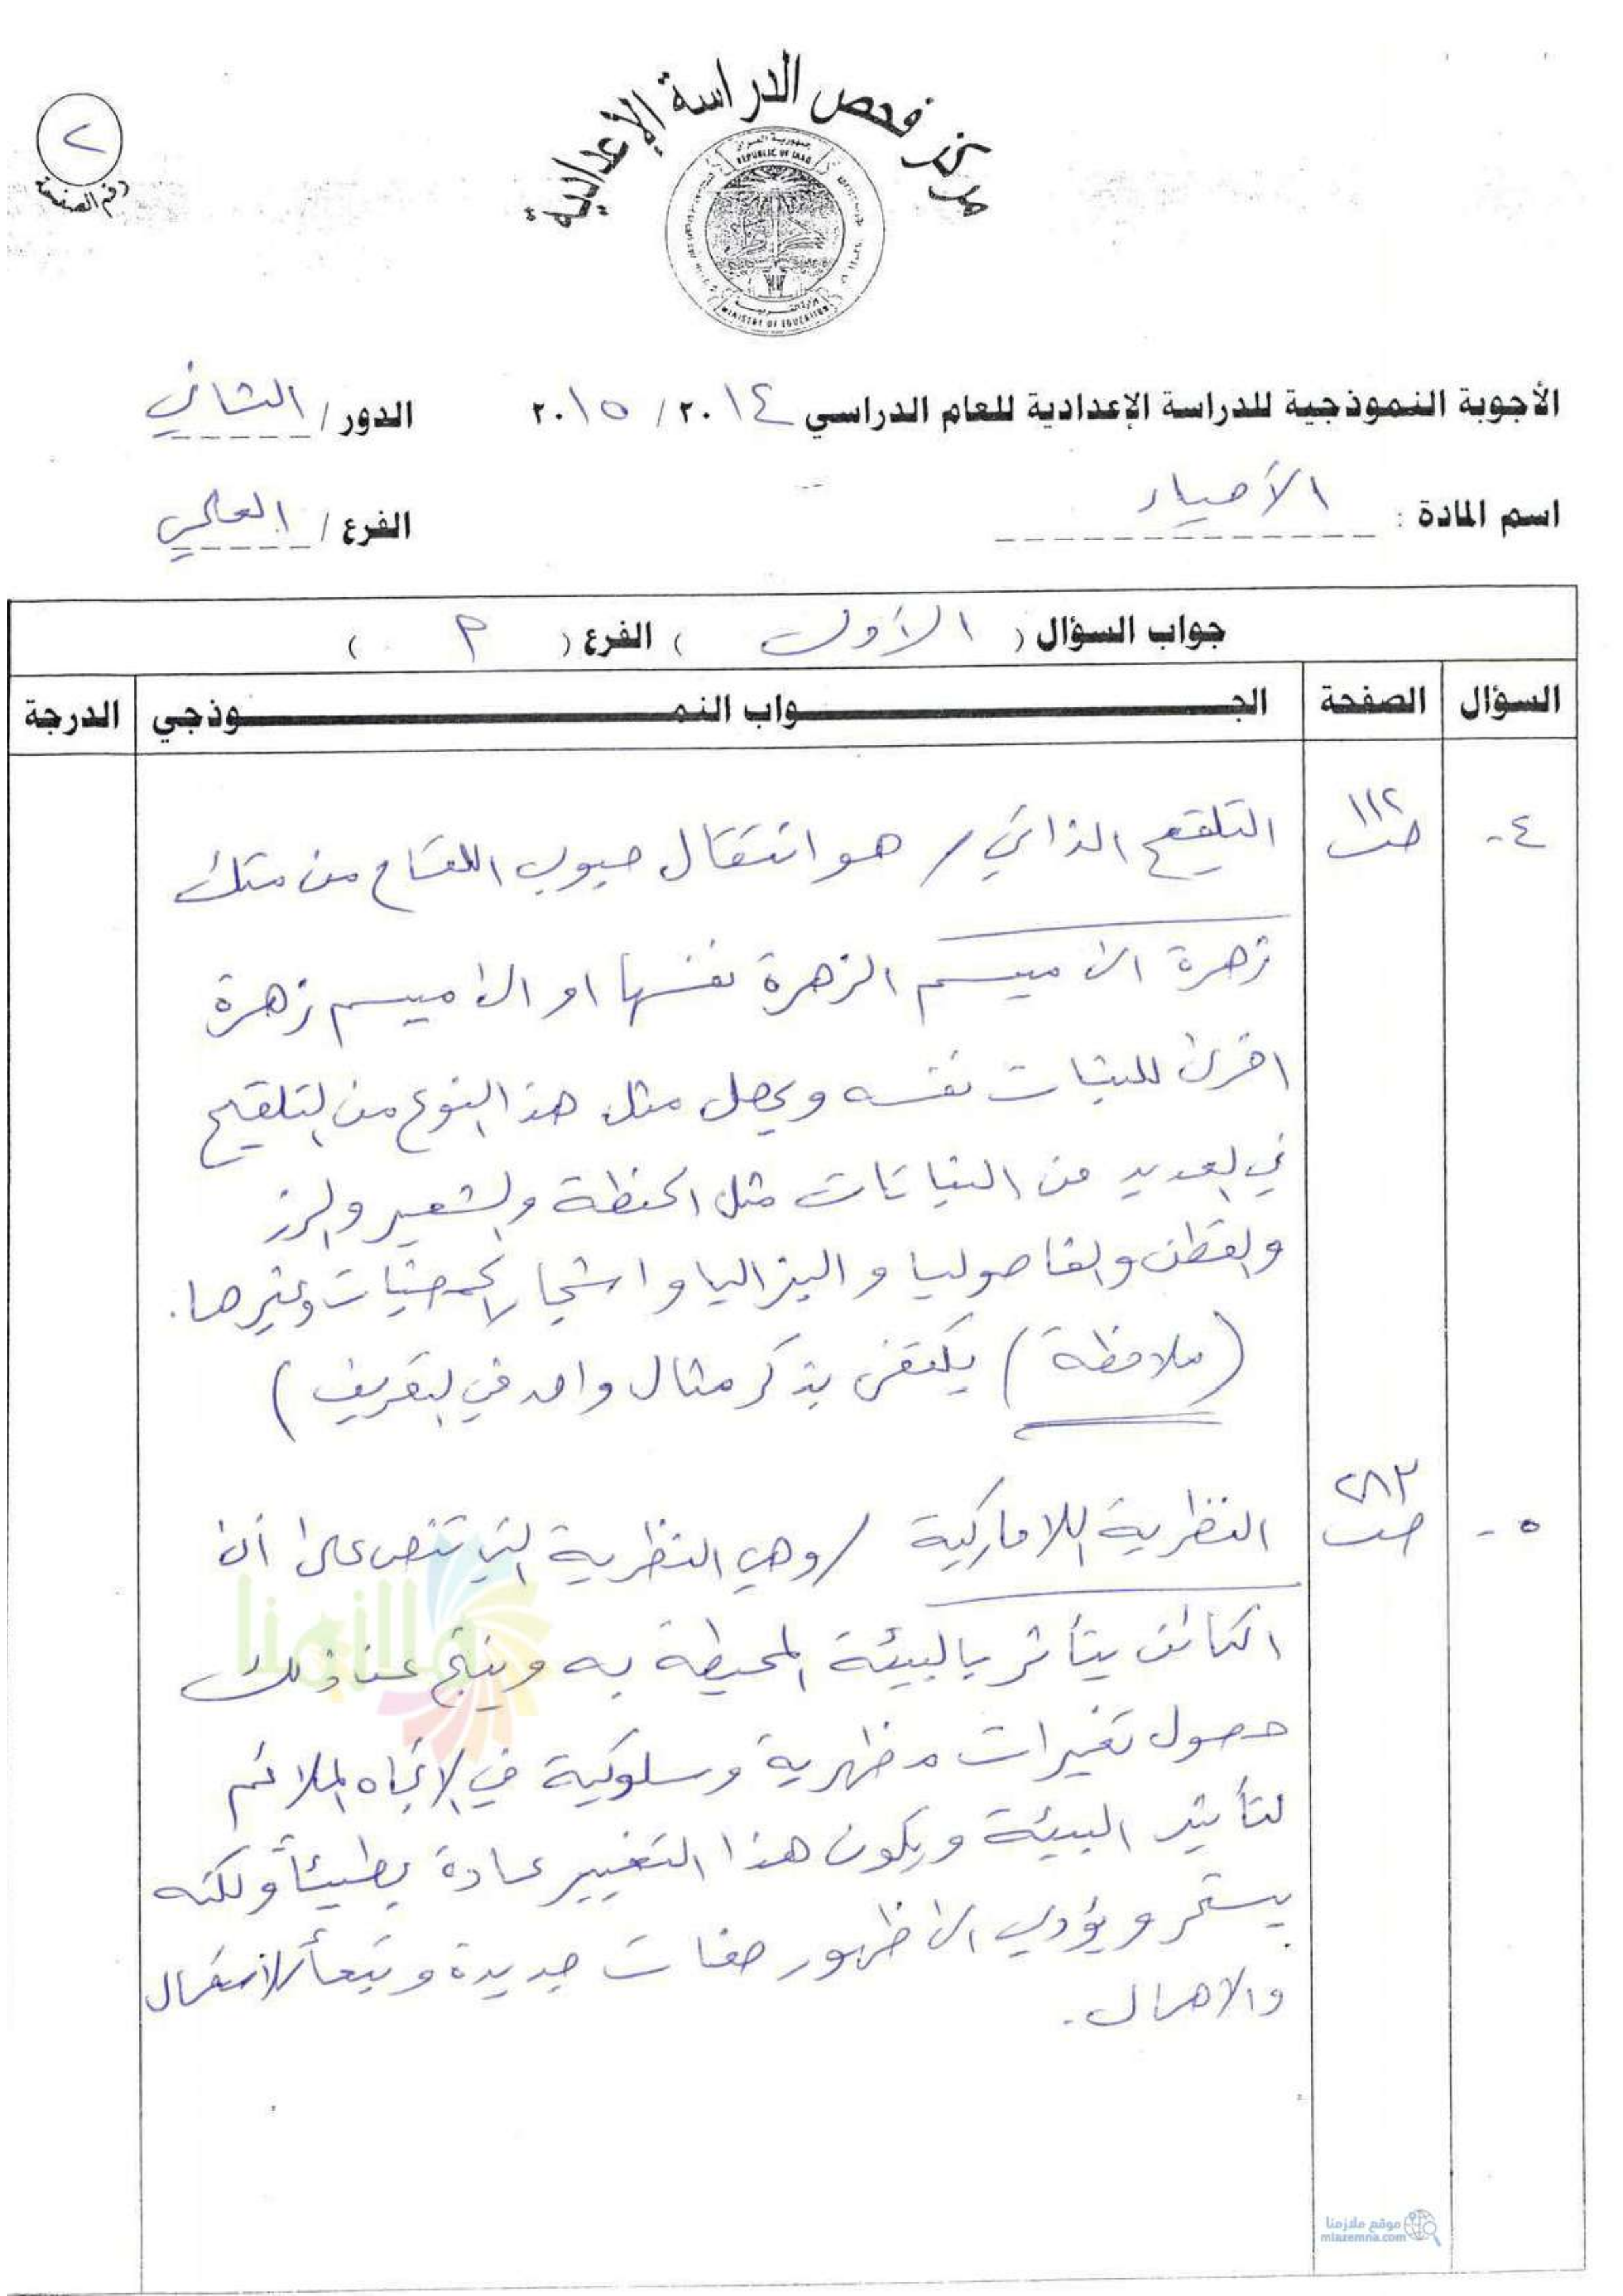 مركز فحص الدراسة الإعدادية
٢
رقم الصفحة
جمهورية العراق
REPUBLIC OF IRAQ
وزارة التربية
MINISTRY OF EDUCATION
الأجوبة النموذجية للدراسة الإعدادية للعام الدراسي ٢٠١٤ / ٢٠١٥ الدور / الثاني
اسم المادة : الأحياء الفرع / العلمي
جواب السؤال ( الأول ) الفرع ( P )
السؤال الصفحة الجــواب النمــوذجي الدرجة
٤- ١١٢ ص التلقيح الذاتي / هو انتقال حبوب اللقاح من متك
زهرة الى ميسم الزهرة نفسها او الى ميسم زهرة
اخرى للنبات نفسه ويحصل مثل هذا النوع من التلقيح
في العديد من النباتات مثل الحنطة والشعير والرز
والقطن والفاصوليا و البزاليا و اشجار الحمضيات وغيرها.
(ملاحظة) يكتفى بذكر مثال واحد في التعريف)
٥- ٢٨٣ ص النظرية اللاماركية / وهي النظرية التي تنص على أن
الكائن يتأثر بالبيئة المحيطة به وينتج عن ذلك
حصول تغيرات مظهرية وسلوكية في الاتجاه الملائم
لتأثير البيئة ويكون هذا التغيير عادة بطيئاً ولكنه
يستمر و يؤدي الى ظهور صفات جديدة و تبعاً للاستعمال
والاهمال.
ملازمنا
موقع ملازمنا
mlazemna.com